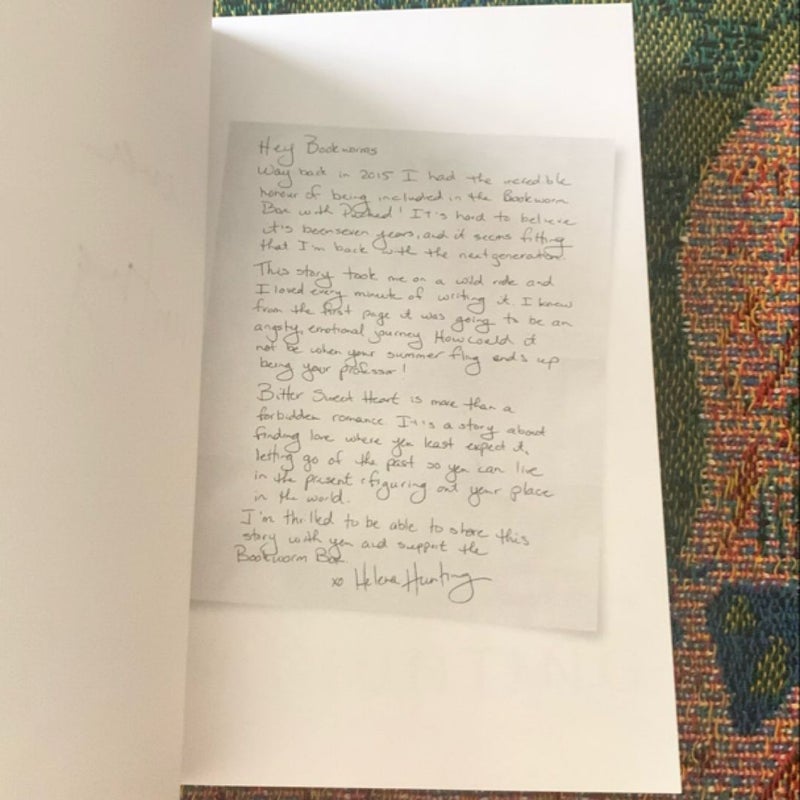 Hey Bookworms
Way back in 2015 I had the incredible
honour of being included in the Bookworm
Box with Pucked! It's hard to believe
it's been seven years, and it seems fitting
that I'm back with the next generation.
This story took me on a wild ride and
I loved every minute of writing it. I knew
from the first page it was going to be an
angsty, emotional journey. How could it
not be when your summer fling ends up
being your professor!
Bitter Sweet Heart is more than a
forbidden romance. It's a story about
finding love where you least expect it,
letting go of the past so you can live
in the present & figuring out your place
in the world.
I'm thrilled to be able to share this
story with you and support the
Bookworm Box.
xo Helena Hunting